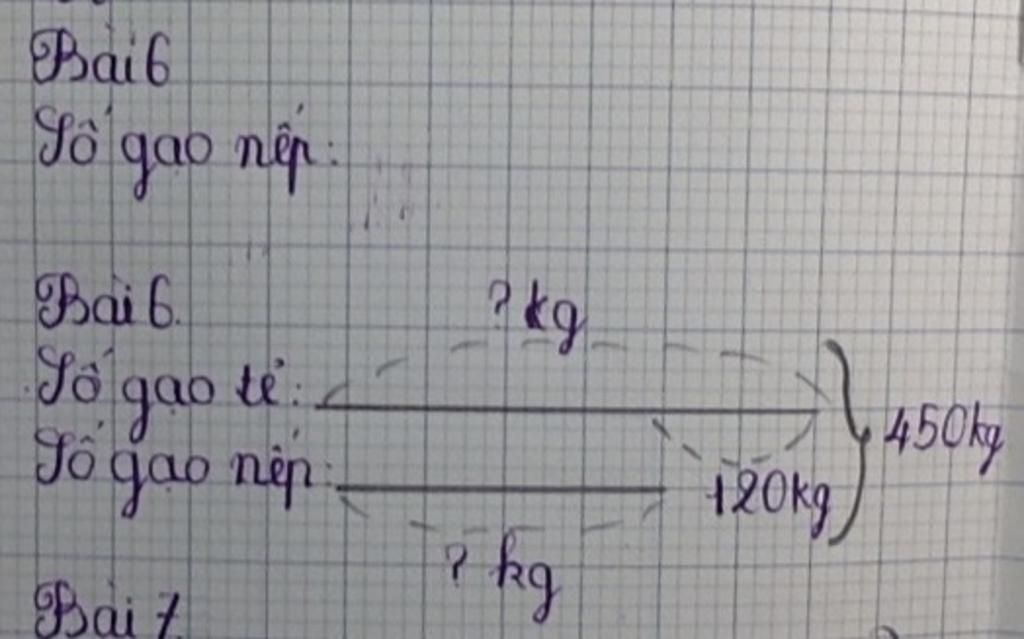 Bài 6
Số gạo nếp:
Bài 6.
? kg
Số gạo tẻ:
450kg
Số gạo nếp:
120kg
? kg
Bài 7.